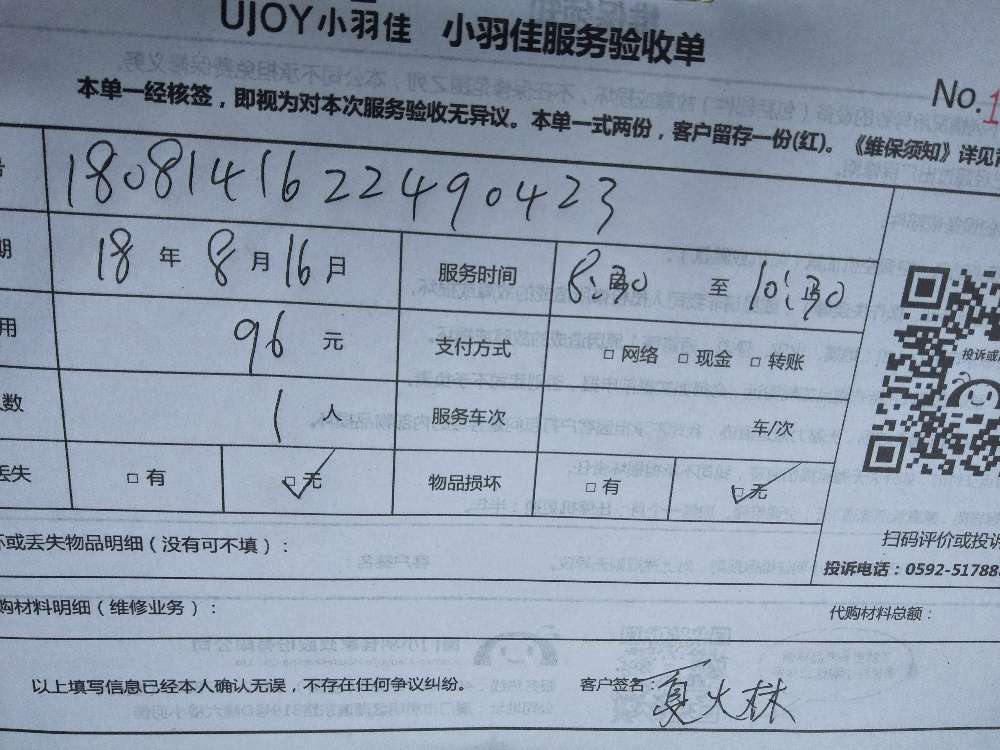 UJOY小羽佳 小羽佳服务验收单
No.1
本单一经核签，即视为对本次服务验收无异议。本单一式两份，客户留存一份(红)。《维保须知》详见
号 180814162249 0423
期 18 年 8 月 16 日 服务时间 8:30 至 10:30
用 96 元 支付方式 □ 网络 □ 现金 □ 转账
数 1 人 服务车次 车/次
丢失 □ 有 □ 无 物品损坏 □ 有 □ 无
投诉或
坏或丢失物品明细（没有可不填）：
扫码评价或投诉
投诉电话：0592-51788
购材料明细（维修业务）： 代购材料总额：
以上填写信息已经本人确认无误，不存在任何争议纠纷。 客户签名： 夏火林